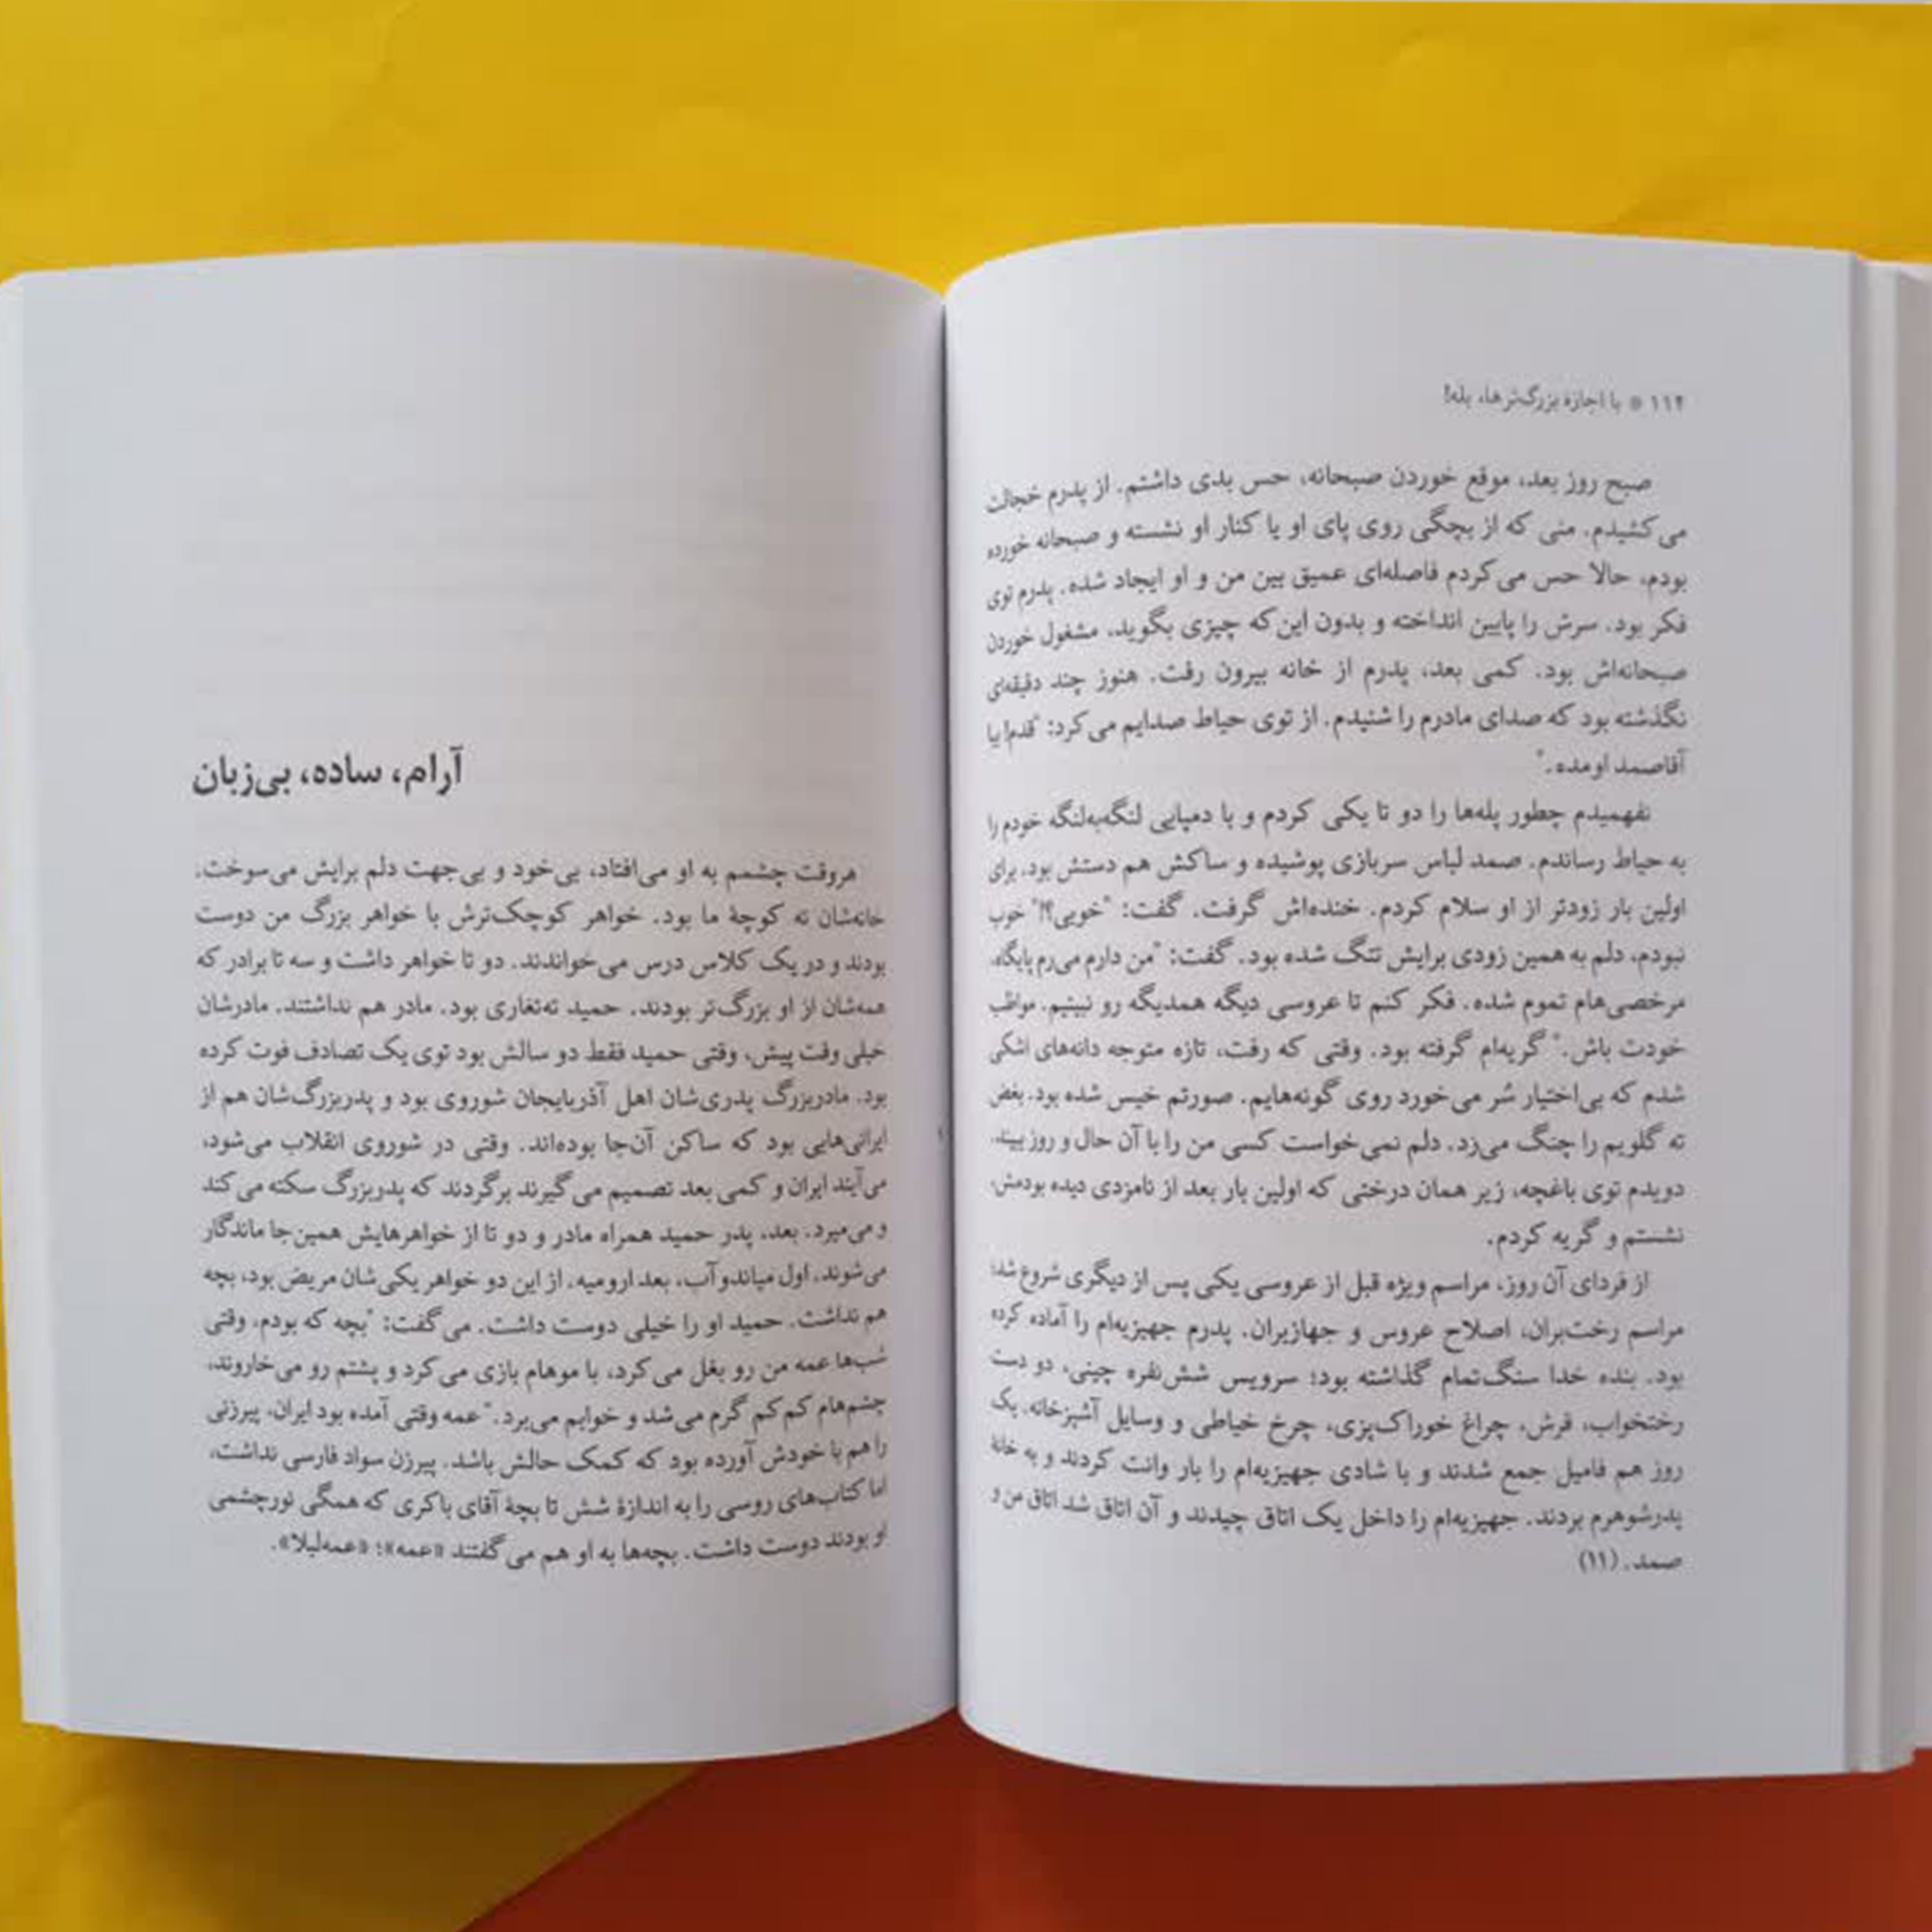 ۱۱۴ * با اجازه بزرگ‌ترها، بله!
صبح روز بعد، موقع خوردن صبحانه، حس بدی داشتم. از پدرم خجالت
می‌کشیدم. منی که از بچگی روی پای او یا کنار او نشسته و صبحانه خورده
بودم، حالا حس می‌کردم فاصله‌ای عمیق بین من و او ایجاد شده. پدرم توی
فکر بود. سرش را پایین انداخته و بدون این‌که چیزی بگوید، مشغول خوردن
صبحانه‌اش بود. کمی بعد، پدرم از خانه بیرون رفت. هنوز چند دقیقه‌ای
نگذشته بود که صدای مادرم را شنیدم. از توی حیاط صدایم می‌کرد: "قدم! بیا
آقاصمد اومده."
نفهمیدم چطور پله‌ها را دو تا یکی کردم و با دمپایی لنگه‌به‌لنگه خودم را
به حیاط رساندم. صمد لباس سربازی پوشیده و ساکش هم دستش بود. برای
اولین بار زودتر از او سلام کردم. خنده‌اش گرفت. گفت: "خوبی؟!" خوب
نبودم، دلم به همین زودی برایش تنگ شده بود. گفت: "من دارم می‌رم پایگاه،
مرخصی‌هام تموم شده. فکر کنم تا عروسی دیگه همدیگه رو نبینیم. مواظب
خودت باش." گریه‌ام گرفته بود. وقتی که رفت، تازه متوجه دانه‌های اشکی
شدم که بی‌اختیار سُر می‌خورد روی گونه‌هایم. صورتم خیس شده بود. بغض
ته گلویم را چنگ می‌زد. دلم نمی‌خواست کسی من را با آن حال و روز ببیند.
دویدم توی باغچه، زیر همان درختی که اولین بار بعد از نامزدی دیده بودمش،
نشستم و گریه کردم.
از فردای آن روز، مراسم ویژه قبل از عروسی یکی پس از دیگری شروع شد؛
مراسم رخت‌بران، اصلاح عروس و جهازبران. پدرم جهیزیه‌ام را آماده کرده
بود. بنده خدا سنگ‌تمام گذاشته بود؛ سرویس شش‌نفره چینی، دو دست
رختخواب، فرش، چراغ خوراک‌پزی، چرخ خیاطی و وسایل آشپزخانه. یک
روز هم فامیل جمع شدند و با شادی جهیزیه‌ام را بار وانت کردند و به خانهٔ
پدرشوهرم بردند. جهیزیه‌ام را داخل یک اتاق چیدند و آن اتاق شد اتاق من و
صمد. (۱۱)
آرام، ساده، بی‌زبان
هروقت چشمم به او می‌افتاد، بی‌خود و بی‌جهت دلم برایش می‌سوخت.
خانه‌شان ته کوچهٔ ما بود. خواهر کوچک‌ترش با خواهر بزرگ من دوست
بودند و در یک کلاس درس می‌خواندند. دو تا خواهر داشت و سه تا برادر که
همه‌شان از او بزرگ‌تر بودند. حمید ته‌تغاری بود. مادر هم نداشتند. مادرشان
خیلی وقت پیش، وقتی حمید فقط دو سالش بود توی یک تصادف فوت کرده
بود. مادربزرگ پدری‌شان اهل آذربایجان شوروی بود و پدربزرگ‌شان هم از
ایرانی‌هایی بود که ساکن آن‌جا بوده‌اند. وقتی در شوروی انقلاب می‌شود،
می‌آیند ایران و کمی بعد تصمیم می‌گیرند برگردند که پدربزرگ سکته می‌کند
و می‌میرد. بعد، پدر حمید همراه مادر و دو تا از خواهرهایش همین‌جا ماندگار
می‌شوند. اول میاندوآب، بعد ارومیه. از این دو خواهر یکی‌شان مریض بود، بچه
هم نداشت. حمید او را خیلی دوست داشت. می‌گفت: "بچه که بودم، وقتی
شب‌ها عمه من رو بغل می‌کرد، با موهام بازی می‌کرد و پشتم رو می‌خاروند،
چشم‌هام کم‌کم گرم می‌شد و خوابم می‌برد." عمه وقتی آمده بود ایران، پیرزنی
را هم با خودش آورده بود که کمک حالش باشد. پیرزن سواد فارسی نداشت،
اما کتاب‌های روسی را به اندازهٔ شش تا بچهٔ آقای باکری که همگی نورچشمی
او بودند دوست داشت. بچه‌ها به او هم می‌گفتند «عمه»؛ «عمه‌لیلا».